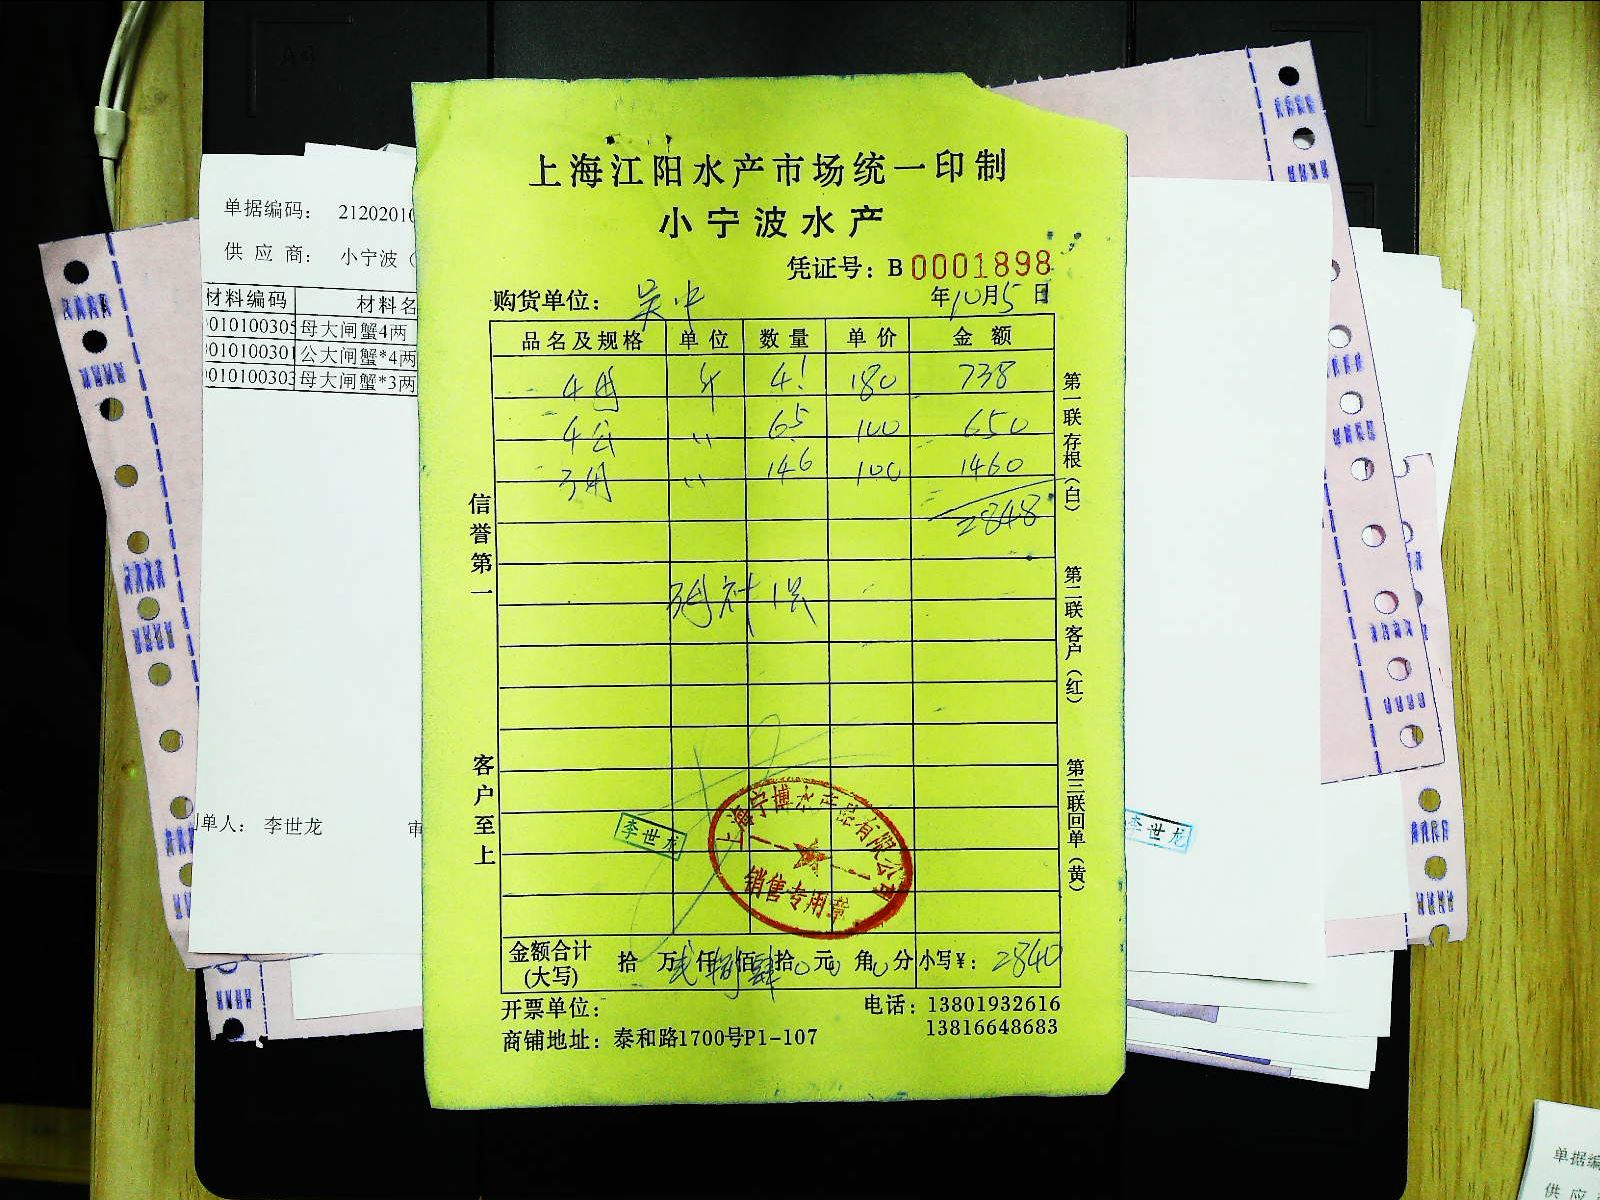 上海江阳水产市场统一印制
小宁波水产
凭证号：B 0001898
购货单位：吴中 年10月5日
品名及规格 单位 数量 单价 金额
4母 斤 4.1 180 738
4公 〃 6.5 100 650
3母 〃 14.6 100 1460
2848
信誉第一
客户至上
第一联存根（白）
第二联客户（红）
第三联回单（黄）
李世龙
上海宁博水产品有限公司
销售专用章
金额合计（大写） 拾 万贰仟捌佰肆拾0元0角0分 小写¥：2840
开票单位： 电话：13801932616
13816648683
商铺地址：泰和路1700号P1-107
单据编码： 21202010
供应商： 小宁波（
材料编码 材料名
010100305 母大闸蟹4两
010100301 公大闸蟹*4两
010100303 母大闸蟹*3两
单人： 李世龙 审
李世龙
单据编
供应